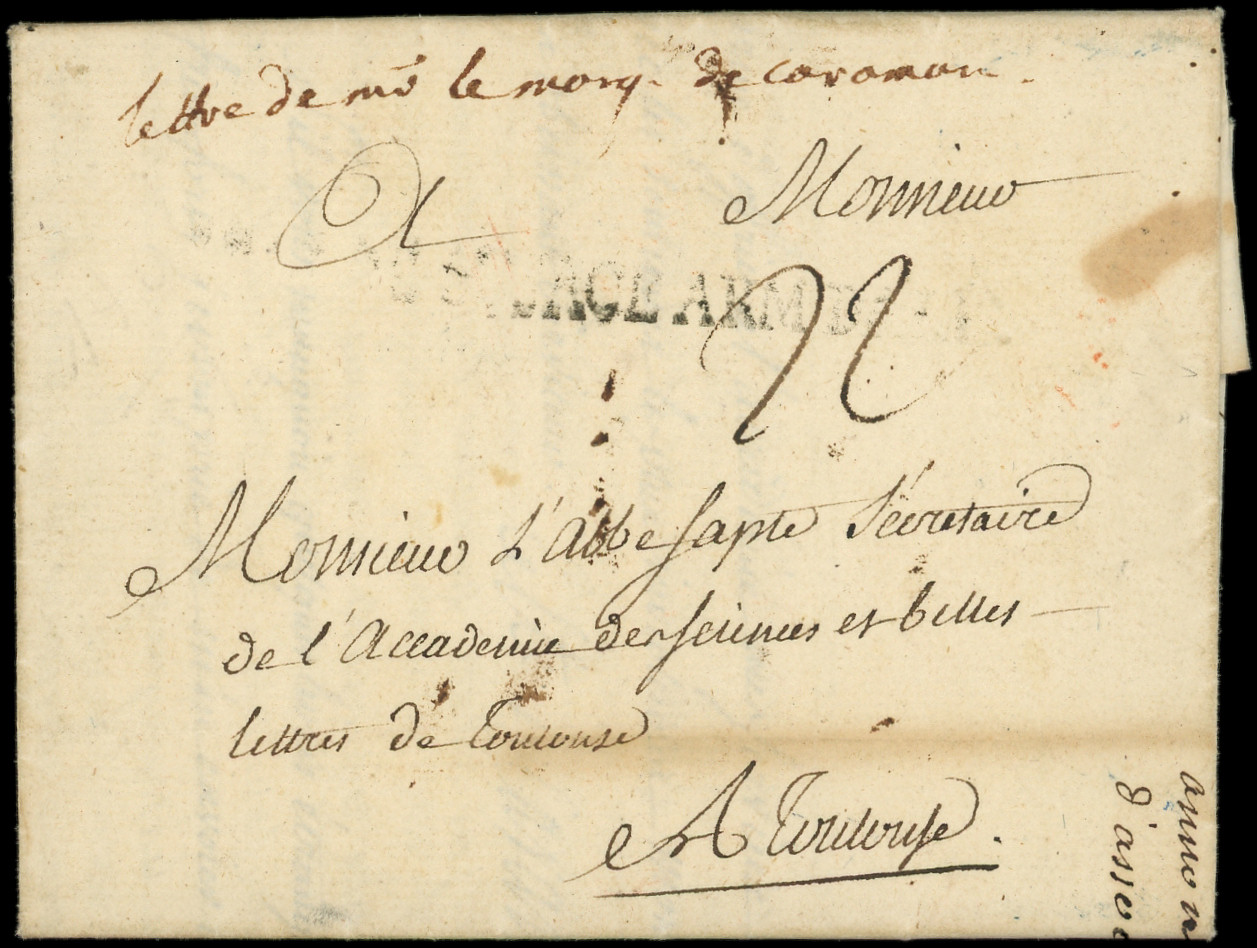 lettre de mr le marq. de caraman.
A Monsieur
AGE ARM
22
Monsieur L'abbe Sapte Sécretaire
de l'Accademie des Sciences et belles
lettres de Toulouse
A Toulouse.
anno
d'asse